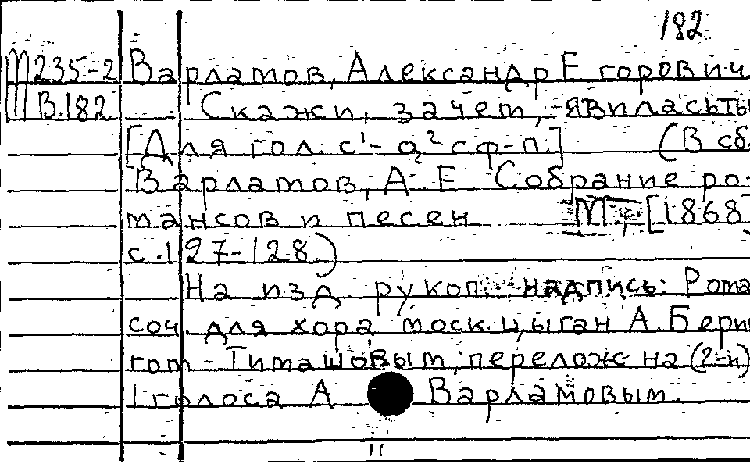 182
М235-2 Варламов, Александр Егорович
В.182 Скажи, зачем, явилась ты
[Для гол. с¹- а² с ф-п.] (В сб.
Варламов, А. Е. Собрание ро-
мансов и песен М., [1868]
с. 127-128)
На изд рукоп. надпись: Рома
соч. для хора моск. цыган А. Бер
гом-Тиmашовым, перелож на (2-и)
голоса А Варламовым.